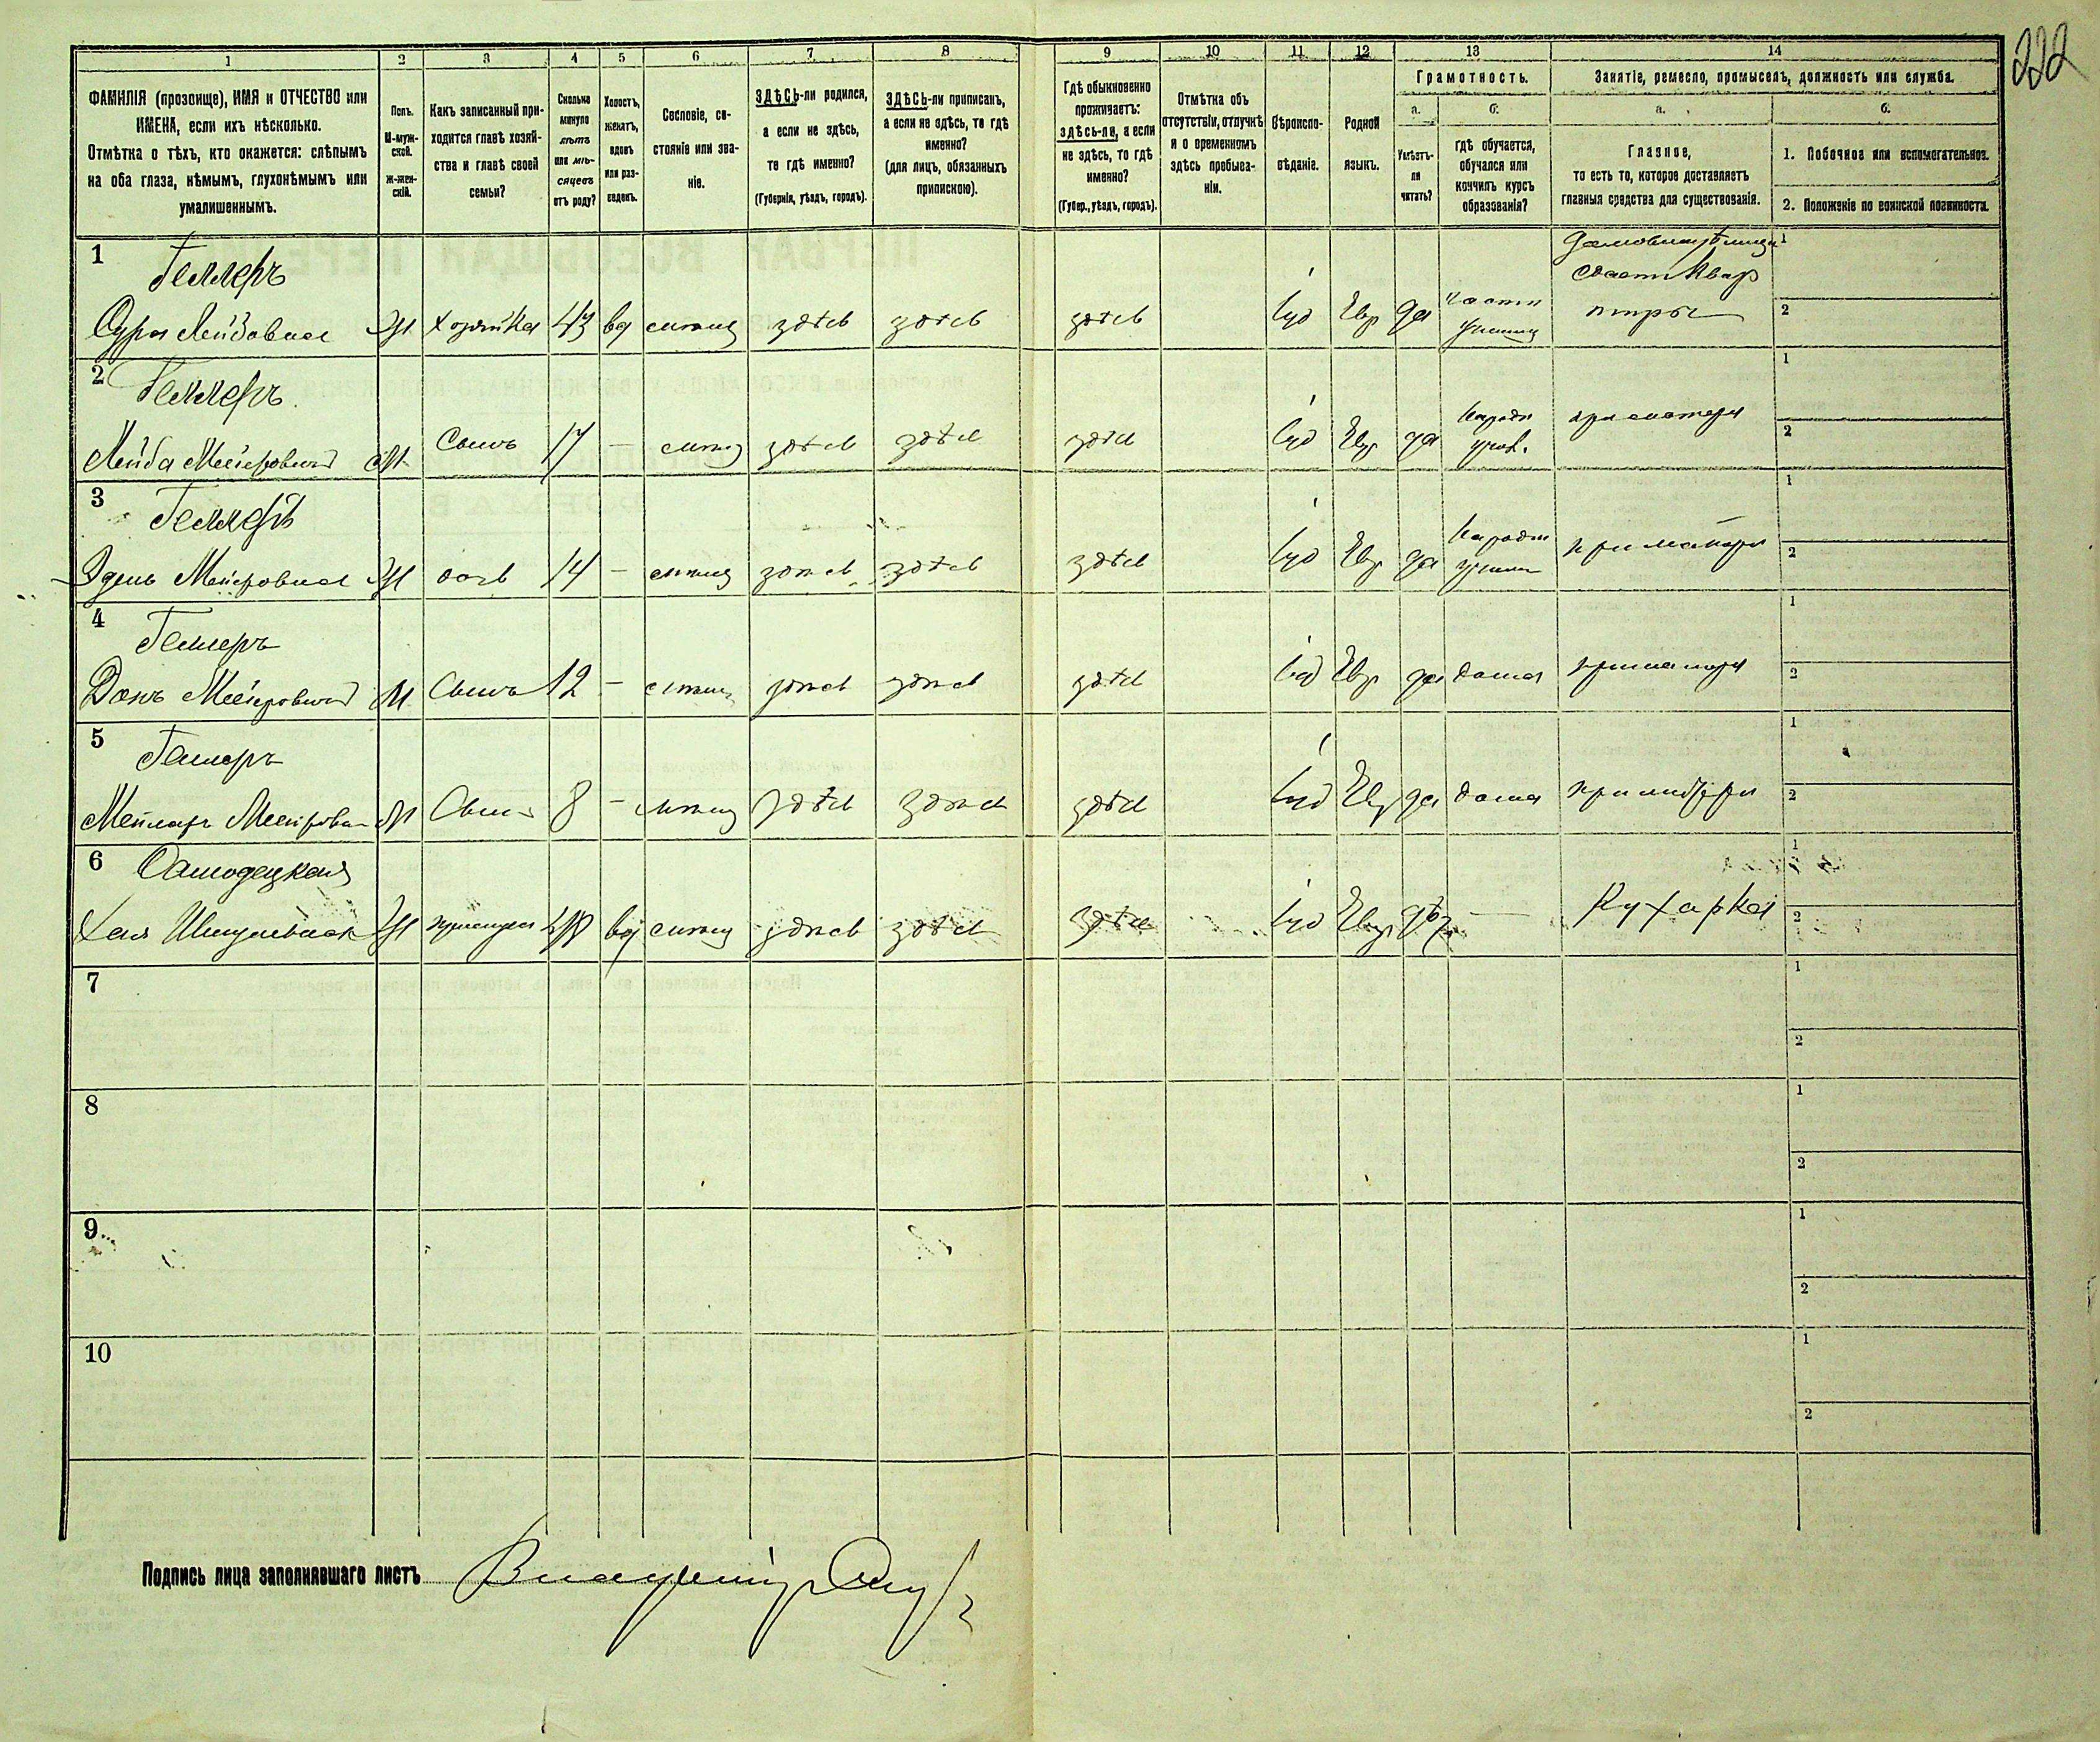 222
1 2 3 4 5 6 7 8 9 10 11 12 13 14
ФАМИЛІЯ (прозвище), ИМЯ и ОТЧЕСТВО или
ИМЕНА, если ихъ нѣсколько.
Отмѣтка о тѣхъ, кто окажется: слѣпымъ
на оба глаза, нѣмымъ, глухонѣмымъ или
умалишеннымъ.
Полъ.
М-муж-
ской.
Ж-жен-
скій.
Какъ записанный при-
ходится главѣ хозяй-
ства и главѣ своей
семьи?
Сколько
минуло
лѣтъ
или мѣ-
сяцевъ
отъ роду?
Холостъ,
женатъ,
вдовъ
или раз-
веденъ.
Сословіе, со-
стояніе или зва-
ніе.
ЗДѢСЬ-ли родился,
а если не здѣсь,
то гдѣ именно?
(Губернія, уѣздъ, городъ).
ЗДѢСЬ-ли приписанъ,
а если не здѣсь, то гдѣ
именно?
(для лицъ, обязанныхъ
припискою).
Гдѣ обыкновенно
проживаетъ:
здѣсь-ли, а если
не здѣсь, то гдѣ
именно?
(Губер., уѣздъ, городъ).
Отмѣтка объ
отсутствіи, отлучкѣ
и о временномъ
здѣсь пребыва-
ніи.
Вѣроиспо-
вѣданіе.
Родной
языкъ.
Грамотность.
а.
Умѣетъ-
ли
читать?
б.
гдѣ обучается,
обучался или
кончилъ курсъ
образованія?
Занятіе, ремесло, промыселъ, должность или служба.
а.
Главное,
то есть то, которое доставляетъ
главныя средства для существованія.
б.
1. Побочное или вспомогательное.
2. Положеніе по воинской повинности.
1 Геллеръ
домовладѣлица 1
сдаетъ квар
Сура Лейбовна Ж хозяйка 43 вд мѣщ здѣсь здѣсь здѣсь іуд Евр да частн тиры 2
2 Геллеръ 1
Лейба Мееровичъ М Сынъ 17 — мѣщ здѣсь здѣсь здѣсь іуд Евр да народн при матери 2
3 Геллеръ 1
Мееровна Ж дочь 14 — мѣщ здѣсь здѣсь здѣсь іуд Евр да народн при матери 2
4 Геллеръ 1
Мееровичъ М Сынъ 12 — мѣщ здѣсь здѣсь здѣсь іуд Евр да дома при матери 2
5 Геллеръ 1
М Сынъ 8 — мѣщ здѣсь здѣсь здѣсь іуд Евр да дома при матери 2
6 1
Хая Шмулевна Ж вд мѣщ здѣсь здѣсь здѣсь іуд Евр — Кухарка 2
7 1
2
8 1
2
9 1
2
10 1
2
Подпись лица заполнявшаго листъ